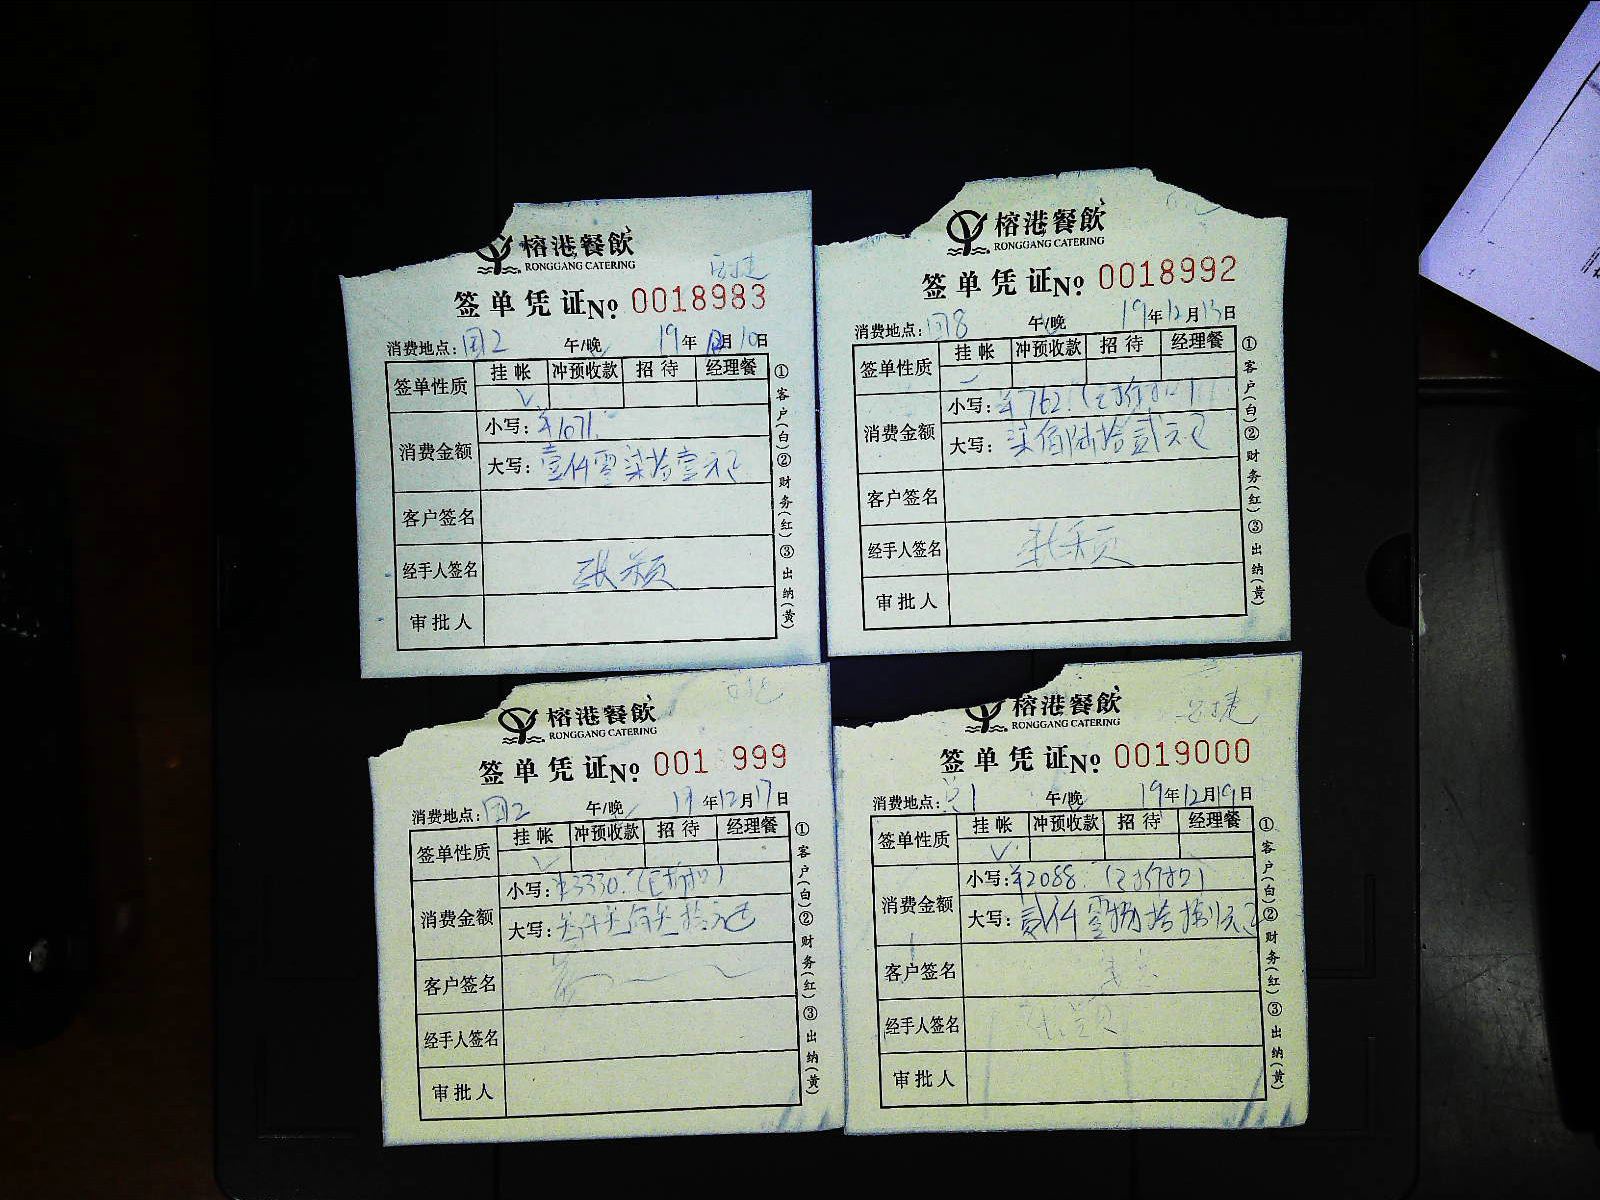 榕港餐飲
RONGGANG CATERING
签单凭证№ 0018983
消费地点: 团2 午/晚 19年12月10日
签单性质 挂帐 冲预收款 招待 经理餐
√
消费金额 小写: ¥1071.
大写: 壹仟零柒拾壹元正
客户签名
经手人签名 张颖
审批人
①客户(白)②财务(红)③出纳(黄)
榕港餐飲
RONGGANG CATERING
签单凭证№ 0018992
消费地点: 团8 午/晚 19年12月13日
签单性质 挂帐 冲预收款 招待 经理餐
消费金额 小写: ¥762.(已折扣)
大写: 柒佰陆拾贰元正
客户签名
经手人签名 张颖
审批人
①客户(白)②财务(红)③出纳(黄)
榕港餐飲
RONGGANG CATERING
签单凭证№ 001 999
消费地点: 团2 午/晚 19年12月17日
签单性质 挂帐 冲预收款 招待 经理餐
√
消费金额 小写: ¥3330.(已折扣)
大写: 叁仟叁佰叁拾元正
客户签名
经手人签名
审批人
①客户(白)②财务(红)③出纳(黄)
榕港餐飲
RONGGANG CATERING
签单凭证№ 0019000
消费地点: 1 午/晚 19年12月19日
签单性质 挂帐 冲预收款 招待 经理餐
√
消费金额 小写: ¥2088.(已折扣)
大写: 贰仟零捌拾捌元正
客户签名
经手人签名
审批人
①客户(白)②财务(红)③出纳(黄)